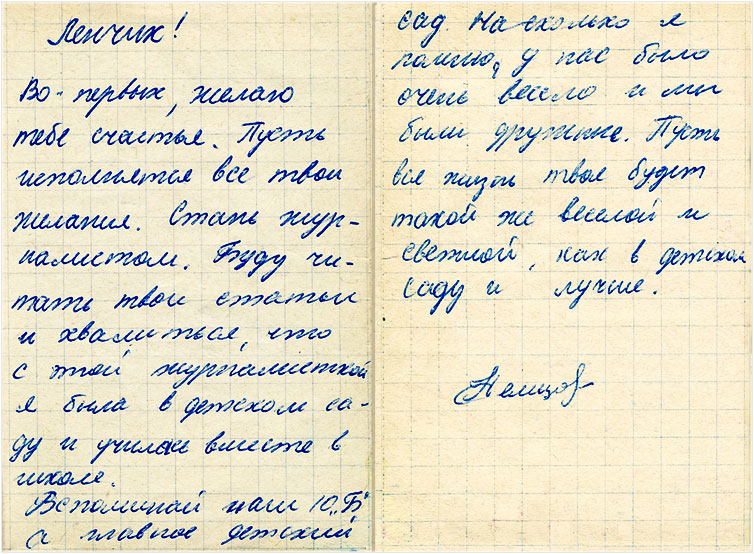 Ленчик!
Во-первых, желаю
тебе счастья. Пусть
исполнятся все твои
желания. Стань жур-
налистом. Буду чи-
тать твои статьи
и хвалиться, что
с этой журналисткой
я была в детском са-
ду и училась вместе в
школе.
Вспоминай наш 10 „Б"
а главное детский
сад. Насколько я
помню, у нас было
очень весело и мы
были дружные. Пусть
вся жизнь твоя будет
такой же веселой и
светлой, как в детском
саду и лучше.